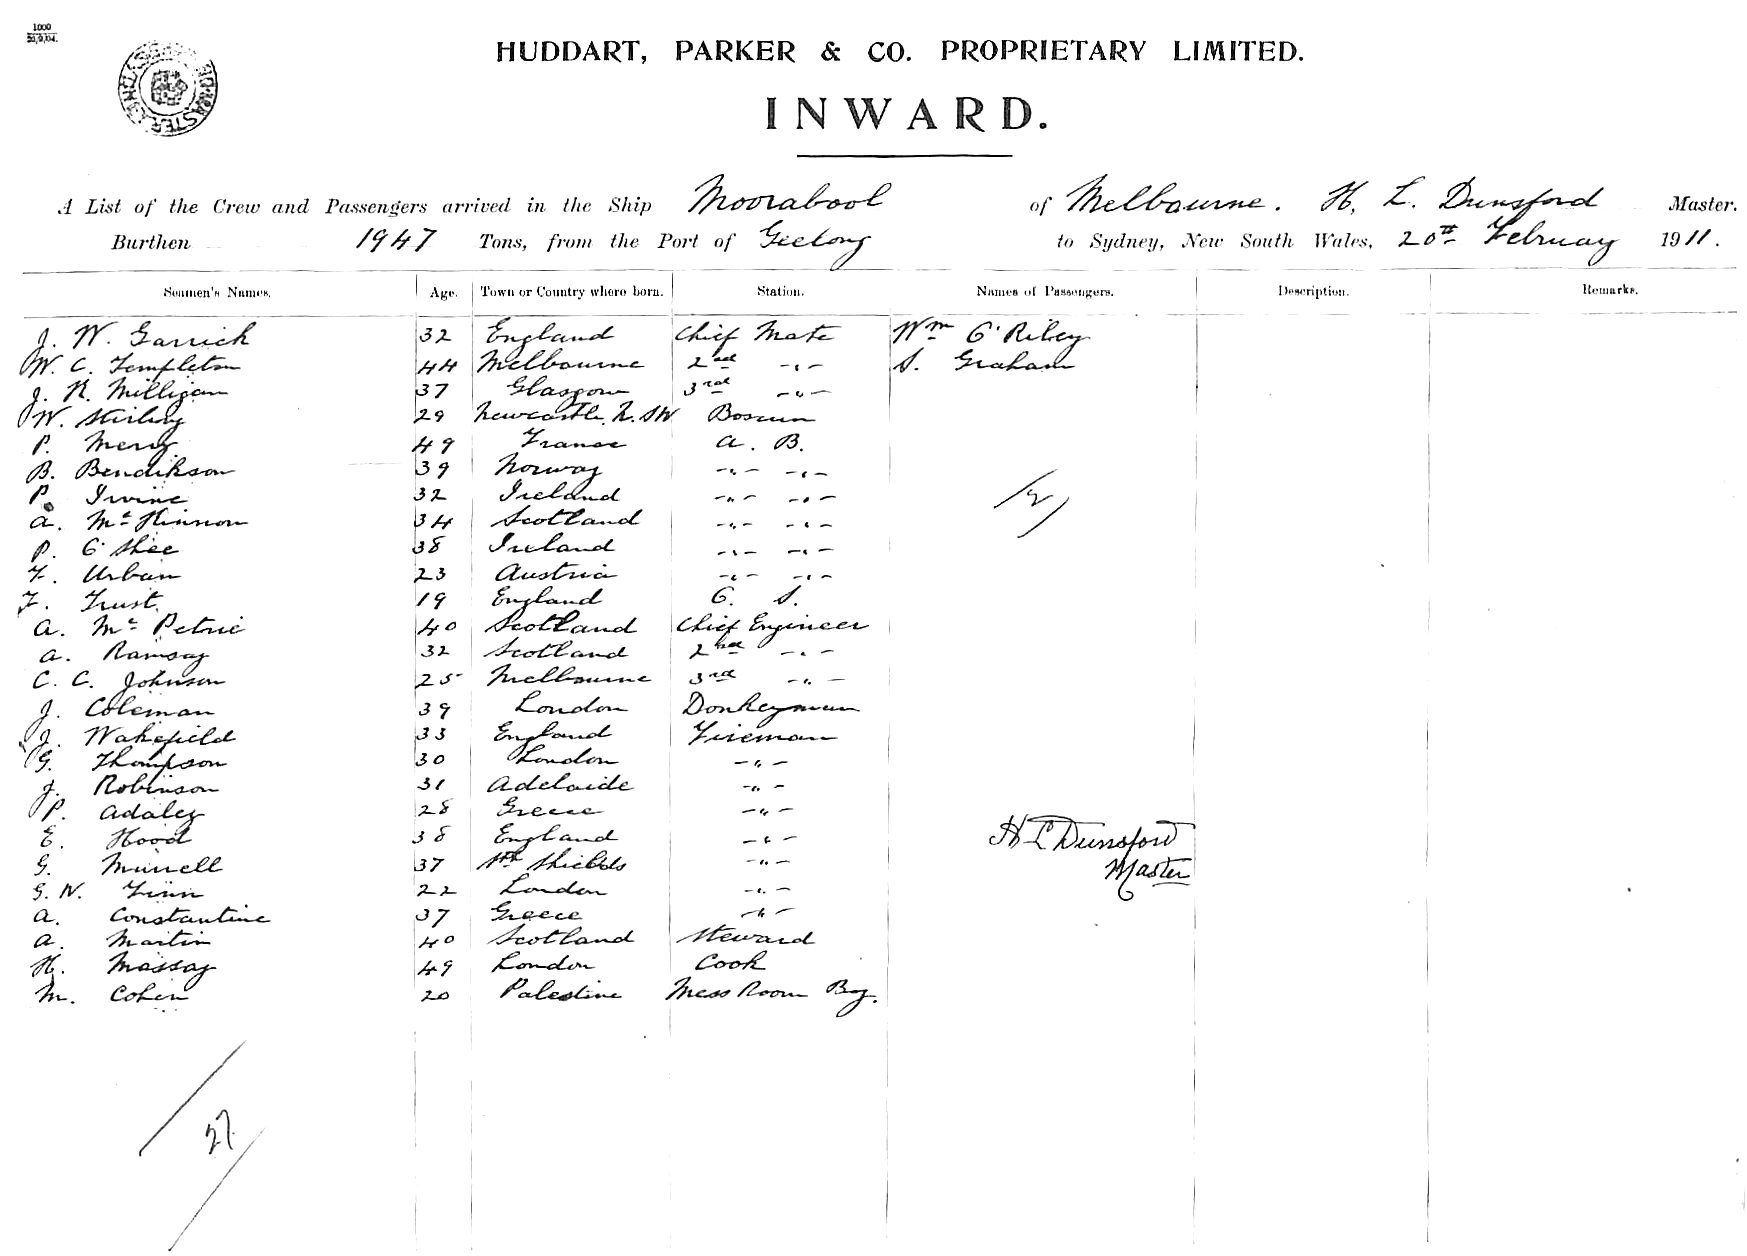 1000
20/9/04.
HUDDART, PARKER & CO. PROPRIETARY LIMITED.
INWARD.
A List of the Crew and Passengers arrived in the Ship Moorabool of Melbourne. H. L. Dunsford Master.
Burthen 1947 Tons, from the Port of Geelong to Sydney, New South Wales, 20th February 1911.
Seamen's Names. Age. Town or Country where born. Station. Names of Passengers. Description. Remarks.
J. W. Garrick 32 England Chief Mate Wm O'Riley
W. C. Templeton 44 Melbourne 2nd -"- S. Graham
J. R. Milligan 37 Glasgow 3rd -"-
W. Stirling 29 Newcastle N. SW Bosun
P. Mercy 49 France A. B.
B. Bendikson 39 Norway -"- -"-
P. Irvine 32 Ireland -"- -"-
A. McKinnon 34 Scotland -"- -"-
P. O'Shee 38 Ireland -"- -"-
F. Urban 23 Austria -"- -"-
F. Trust. 19 England O. S.
A. Mc Petrie 40 Scotland Chief Engineer
A. Ramsay 32 Scotland 2nd -"-
C. C. Johnson 25 Melbourne 3rd -"-
J. Coleman 39 London Donkeyman
J. Wakefield 33 England Fireman
G. Thompson 30 London -"-
J. Robinson 31 Adelaide -"-
P. Adaley 28 Greece -"-
E. Hood 38 England -"-
G. Murrell 37 Sth Shields -"-
G. W. Finn 22 London -"-
A. Constantine 37 Greece -"-
A. Martin 40 Scotland Steward
H. Massay 49 London Cook
M. Cohen 20 Palestine Mess Room Boy.
/2/
H L Dunsford
Master
/27/